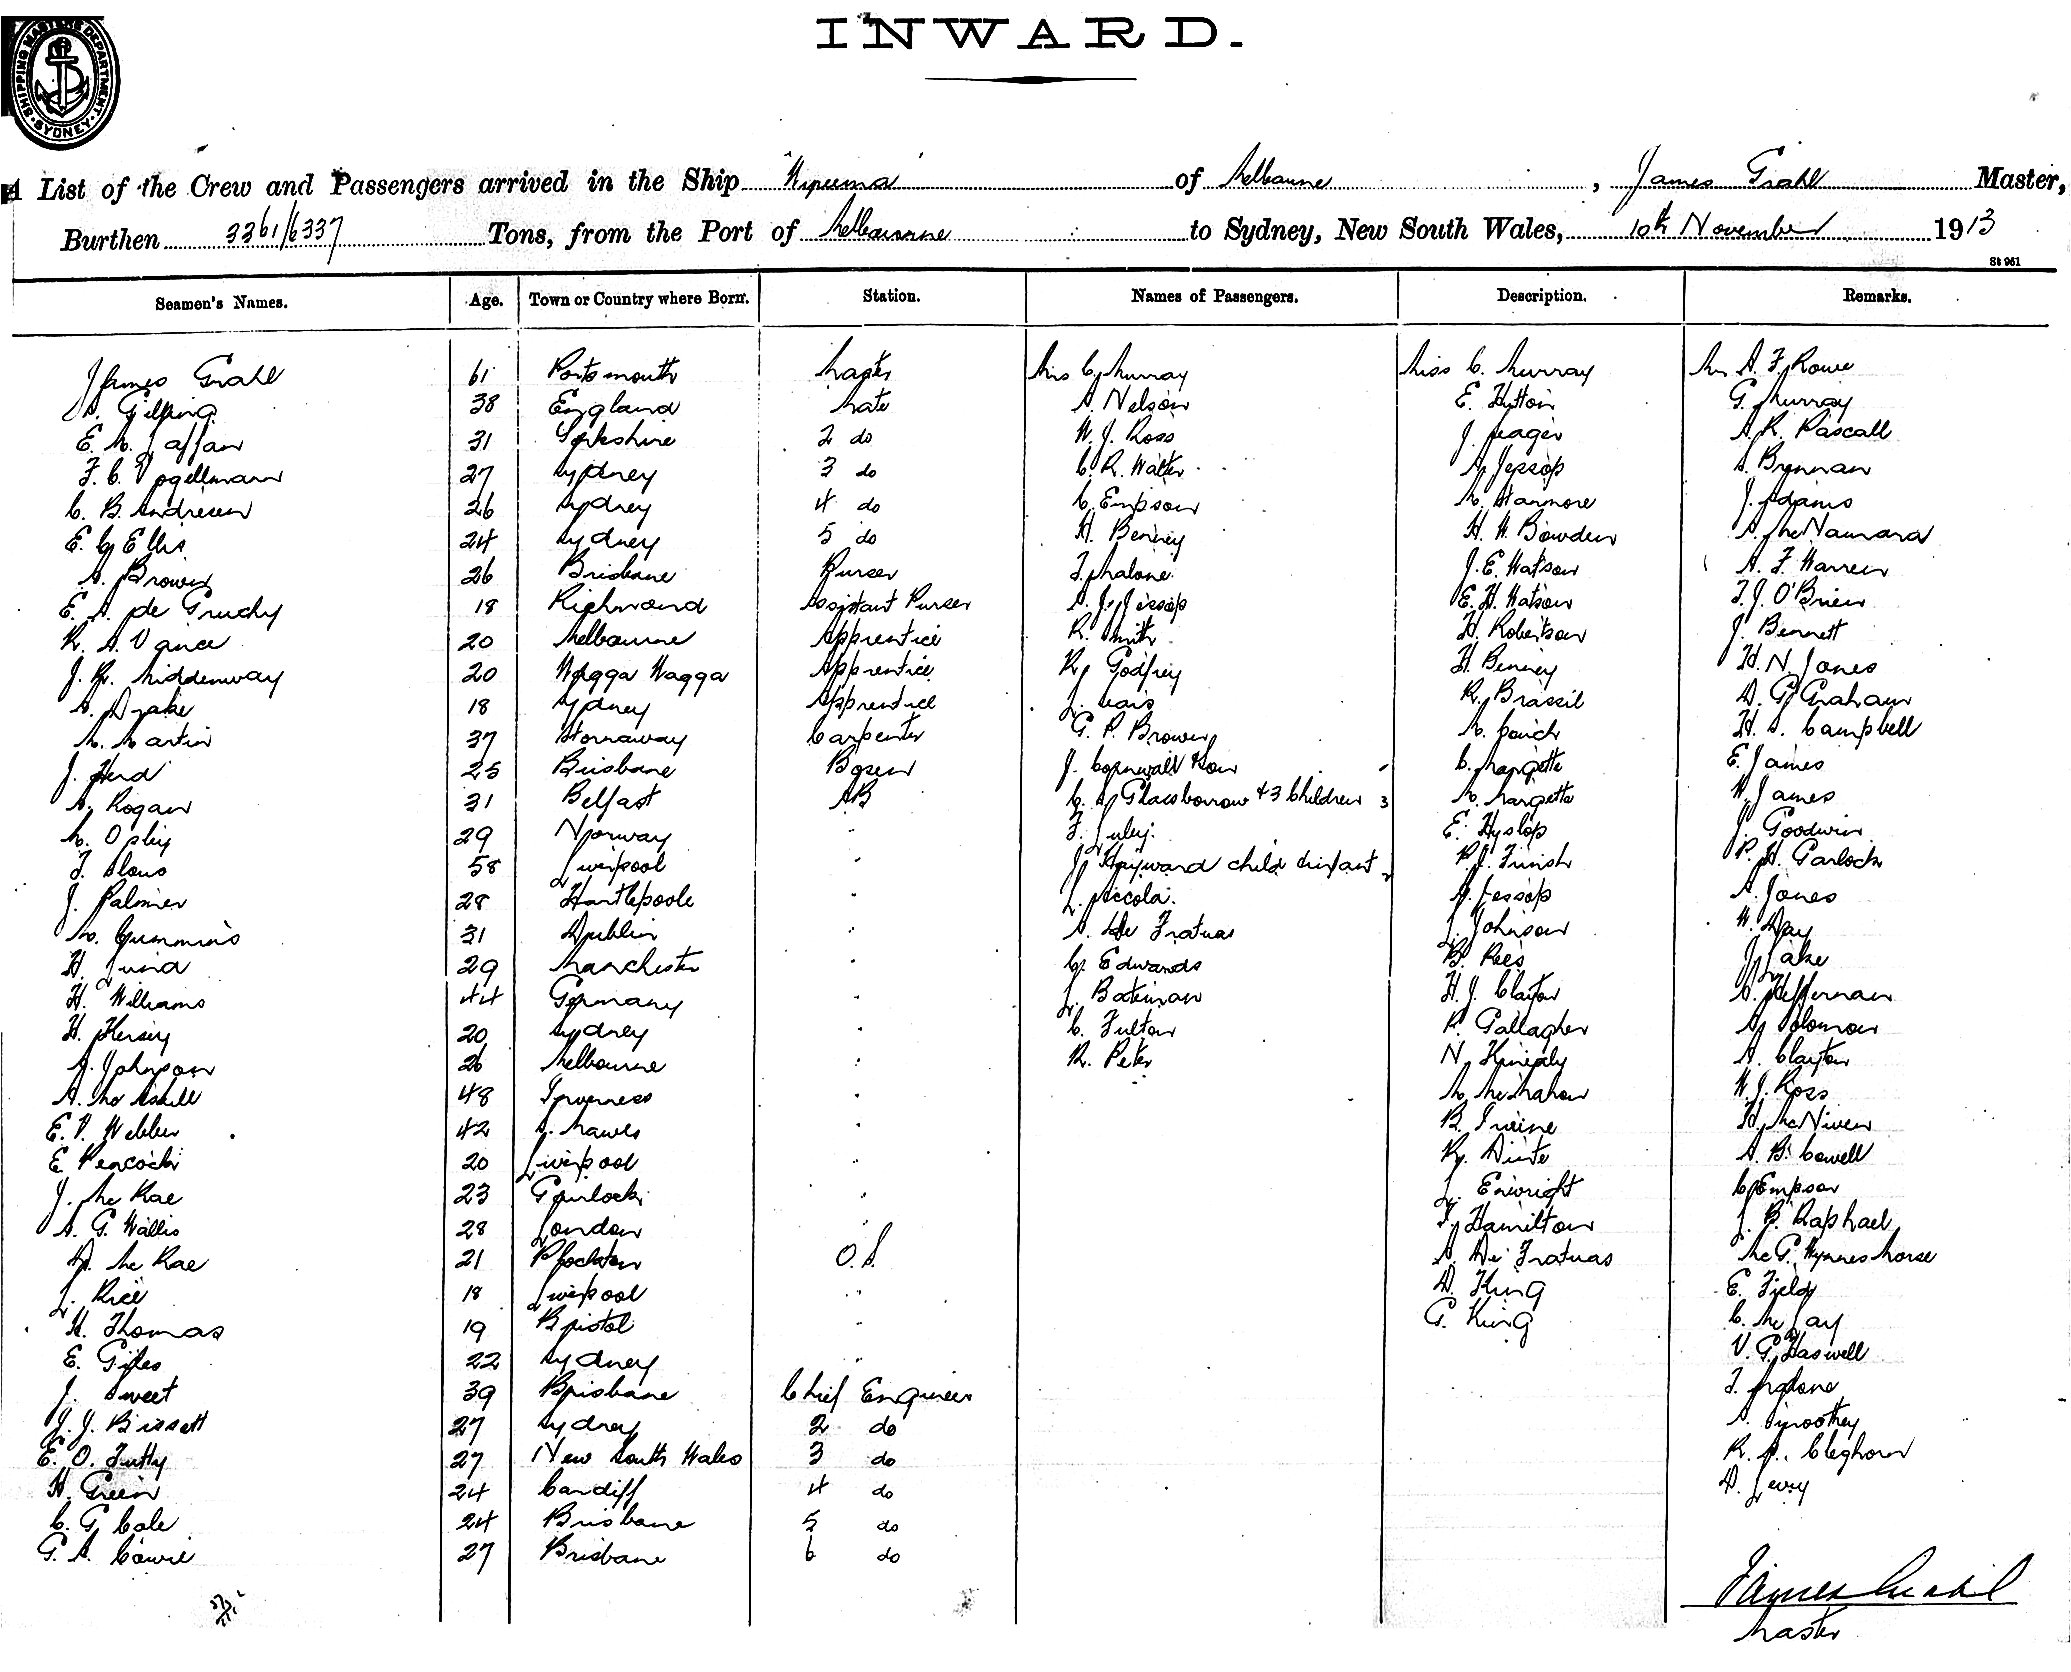 INWARD.
SHIPPING MASTERS DEPARTMENT. SYDNEY.
A List of the Crew and Passengers arrived in the Ship Wyreema of Melbourne, James Grahl Master,
Burthen 3361/6337 Tons, from the Port of Melbourne to Sydney, New South Wales, 10th November 1913
St 961
Seamen's Names. Age. Town or Country where Born. Station. Names of Passengers. Description. Remarks.
James Grahl 61 Portsmouth Master Miss C. Murray Miss C. Murray Mr A. F. Rowe
38 England Mate A. Nelson E. Hutton G. Murray
31 Yorkshire 2 do W. J. Ross J. A. R. Pascall
27 Sydney 3 do C. R. Walter A. Jessop A. Brennan
C. B. Andrews 26 Sydney 4 do C. Empson M. Stanmore J. Adams
E. C. Ellis 24 Sydney 5 do H. Benney H. H. Bowden A. McNamara
A. Brown 26 Brisbane Purser F. Malone J. E. Watson A. F. Warren
E. A. de Gruchy 18 Richmond Assistant Purser A. J. Jessop E. H. Watson T. J. O'Brien
R. A. Vance 20 Melbourne Apprentice R. Smith H. Robertson J. Bennett
J. R. Middenway 20 Wagga Wagga Apprentice R. Godfrey H. Benney H. N. Jones
A. Drake 18 Sydney Apprentice L. R. Brassil D. G. Graham
M. Martin 37 Stornaway Carpenter G. P. Brown M. H. A. Campbell
J. Herd 25 Brisbane Bosun J. Cornwall C. Margetts E. James
A. Rogan 31 Belfast AB C. A. Glassborrow & 3 Children 3 M. Margetts W. James
M. 29 Norway F. E. Hyslop J. Goodwin
F. 58 Liverpool J. Hayward child & infant 2 P. J. P. H. Garlock
J. Palmer 28 Hartlepoole L. Piccola. A. Jessop A. Jones
M. Cummins 31 Dublin A. De Fratuas J. Johnson W. Day
H. 29 Manchester C. Edwards B. Rees J. Jake
H. Williams 44 Germany L. Bateman H. J. Clayton A. Heffernan
H. Hersey 20 Sydney C. Fulton P. Gallagher A. Solomon
A. Johnson 26 Melbourne R. Peter N. A. Clayton
A. McAskill 48 Inverness M. McMahon W. J. Ross
E. V. Webber 42 B. Irvine H. McNiven
E. Peacock 20 Liverpool R. A. B. Cowell
J. McRae 23 Gourlock L. Enwright C. Empson
A. G. Wallis 28 London F. Hamilton J. B. Raphael
D. McRae 21 Plockton O.S. A. De Fratuas
L. Rice 18 Liverpool D. King E. Field
H. Thomas 19 Bristol G. King C. McJay
E. Giles 22 Sydney V. G. Haswell
J. Sweet 39 Brisbane Chief Engineer F. Malone
J. J. Bissett 27 Sydney 2 do A. Smoothey
E. O. Tutty 27 New South Wales 3 do R. A. Cleghorn
H. Green 24 Cardiff 4 do D. Levy
C. G. Cole 24 Brisbane 5 do
G. A. Cowie 27 Brisbane 6 do
James Grahl
Master